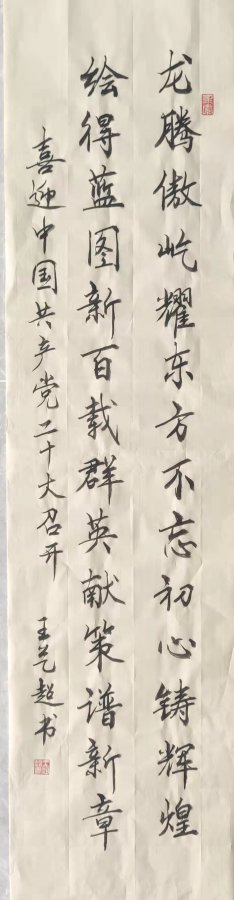 龙腾傲屹耀东方不忘初心铸辉煌
绘得蓝图新百载群英献策谱新章
喜迎中国共产党二十大召开
王艺超书